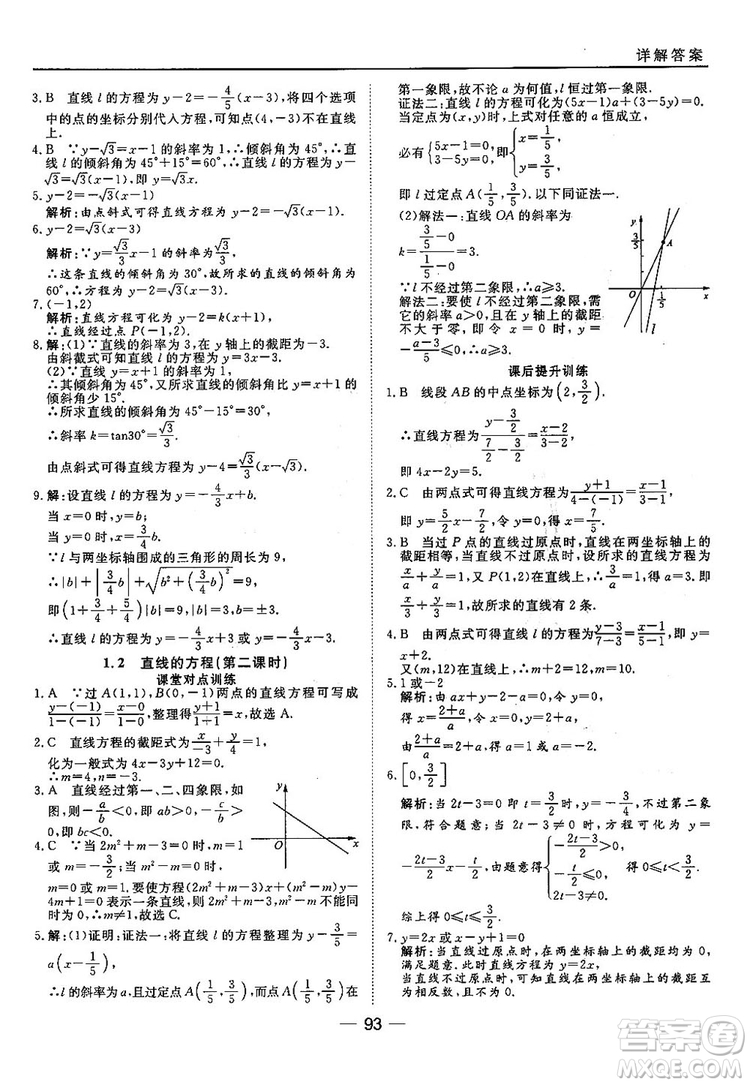 详解答案
3. B 直线 l 的方程为 y-2=-4/5(x-3), 将四个选项
中的点的坐标分别代入方程, 可知点(4,-3)不在直线
上.
4. B ∵y-√3=x-1 的斜率为 1, ∴直线的倾斜角为 45°, ∴直
线 l 的倾斜角为 45°+15°=60°, ∴直线 l 的方程为 y-
√3=√3(x-1).
5. y-2=-√3(x-1)
解析: 由点斜式可得直线方程为 y-2=-√3(x-1).
6. y-2=√3(x-1)
解析: ∵y=√3/3x-1 的斜率为 √3/3,
∴这条直线的倾斜角为 30°, 故所求直线的倾斜角为
60°, ∴方程为 y-2=√3(x-1).
7. (-1,2)
解析: 直线方程可化为 y-2=k(x+1),
∴直线经过点 P(-1,2).
8. 解: (1)∵直线的斜率为 3, 在 y 轴上的截距为-3.
由斜截式可得直线的方程为 y=3x-3.
(2)∵直线 l 的方程为 y=√3x+1,
其倾斜角为 60°, ∴所求直线与直线 l 的夹角为 30°,
∴所求直线的倾斜角为 60°-30°=30°,
∴斜率 k=tan30°=√3/3.
由点斜式可得直线方程为 y-4=√3/3(x-√3).
9. 解: 设直线 l 的方程为 y=-4/3x+b.
当 x=0 时, y=b; 当 y=0 时, x=3/4b.
∵l 与两坐标轴围成的三角形的周长为 9,
∴|b|+|3/4b|+√(b²+(3/4b)²)=9,
即(1+3/4+5/4)|b|=9, ∴|b|=3, b=±3.
∴直线 l 的方程为 y=-4/3x+3 或 y=-4/3x-3.
1.2 直线的方程(第二课时)
课堂对点训练
1. A ∵过 A(1,1), B(0,-1)两点的直线方程可写成
(y-(-1))/(1-(-1))=(x-0)/(1-0), 整理得(y+1)/(1+1)=x, 故选 A.
2. C 直线方程的截距式为 x/-3+y/4=1,
化为一般式为 4x-3y+12=0,
∴m=4, n=-3.
3. A 直线经过第一、二、四象限, 如
图, 则-a/b<0, 即 ab>0, -c/b>
0, 即 bc<0.
4. C ∵当 2m²+m-3=0 时, m=
1 或 m=-3/2; 当 m²-m=0 时,
m=0 或 m=1. 要使方程(2m²+m-3)x+(m²-m)y-
4m+1=0 表示一条直线, 则 2m²+m-3, m²-m 不能同
时为 0, ∴m≠1, 故选 C.
5. 解: (1)证明: 证法一: 将直线 l 的方程整理为 y-3/5=
a(x-1/5),
∴l 的斜率为 a, 且过定点 A(1/5,3/5), 而点 A(1/5,3/5)在
y
O
x
第一象限, 故不论 a 为何值, l 恒过第一象限.
证法二: 直线 l 的方程可化为(5x-1)a+(3-5y)=0.
当定点为(x,y)时, 上式对任意的 a 恒成立.
必有{5x-1=0, 3-5y=0, 即{x=1/5, y=3/5,
即 l 过定点 A(1/5,3/5). 以下同证法一.
(2)解法一: 直线 OA 的斜率为
k=(3/5-0)/(1/5-0)=3.
∵l 不经过第二象限, ∴a≥3.
解法二: 要使 l 不经过第二象限, 需
它的斜率大于零, 且在 y 轴上的截距
不大于零, 即令 x=0 时, y=
-(a-3)/5≤0, ∴a≥3.
y
3/5
A
O
1/5
x
课后提升训练
1. B 线段 AB 的中点坐标为(2,3/2),
∴直线方程为(y-3/2)/(7/2-3/2)=(x-2)/(3-2),
即 4x-2y=5.
2. C 由两点式可得直线方程为(y+1)/(4-(-1))=(x-1)/(3-1),
即 y=5/2x-7/2, 令 x=0, 得 y=-7/2.
3. B 当过 P 点的直线过原点时, 直线在两坐标轴上的
截距相等, 当直线不过原点时, 直线方程可设为
x/a+y/a=1, 又∵过(1,2), ∴a=3. ∴直线方程为
x/3+y/3=1, 故所求的直线有 2 条.
4. B 由两点式可得直线方程为(y-3)/(7-3)=(x-1)/(3-1).
又(m,12)在直线上, ∴m+1-12=0, ∴m=
5. 1 或-2
解析: 由 ax+y-2-a=0, 令 y=0,
得 x=(2+a)/a(a≠0), 令 x=0, 得 y=2+a.
由(2+a)/a=2+a, 得 a=1 或 a=-2.
6. [0,3/2]
解析: 当 2t-3=0 即 t=3/2时, y=6, 不过第二象
限, 符合题意; 当 2t-3≠0 时, 方程可化为 y=
-(2t-3)/2x-t, 由题意得{-(2t-3)/2>0, -t≤0, 解得 0≤t<3/2.
综上得 0≤t≤3/2.
7. y=2x 或 x-y+1=0
解析: 当直线过原点时, 在两坐标轴上的截距均为 0,
满足题意, 此时直线方程为 y=2x;
当直线不过原点时, 可知直线在两坐标轴上的截距互
为相反数, 且不为 0.
93
答案圈
MXQE.COM